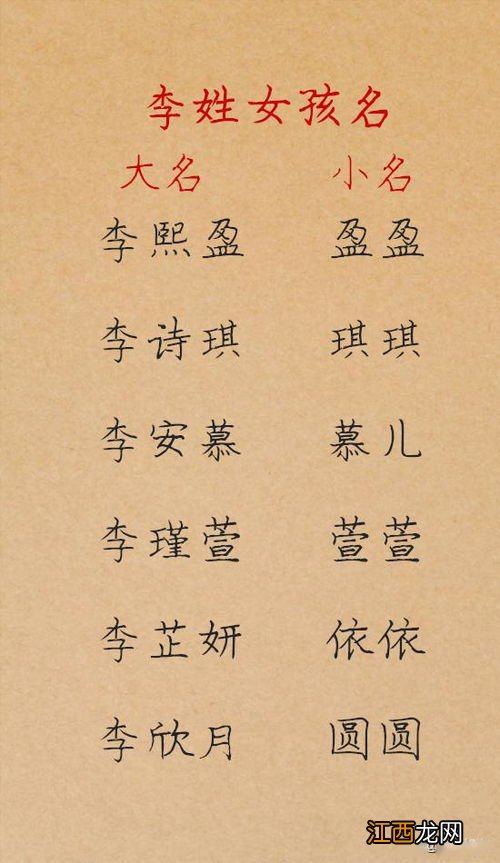 李姓女孩名
大名 小名
李熙盈 盈盈
李诗琪 琪琪
李安慕 慕儿
李瑾萱 萱萱
李芷妍 依依
李欣月 圆圆
江西龙网